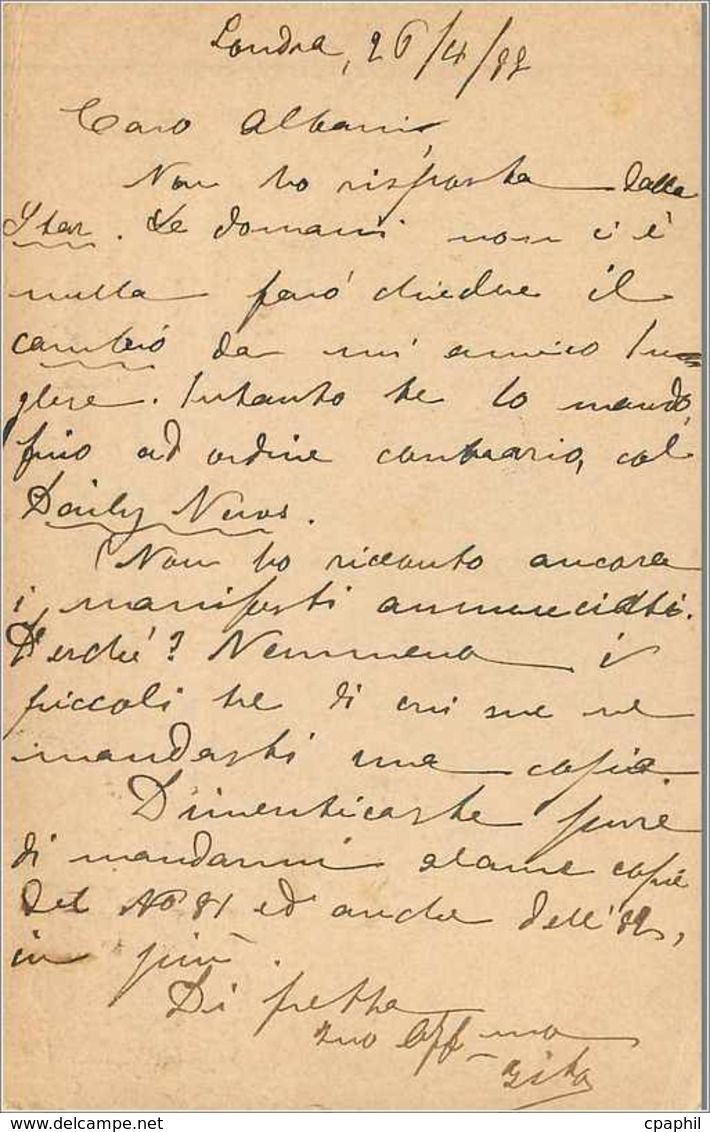 Londra, 26/4/88
Caro Albani,
Non ho risposta dalla
Star. Se domani non c'è
nulla farò chiedere il
cambio da mi amico In
glese. Intanto te lo mando,
fino ad ordine contrario, col
Daily News.
Non ho ricevuto ancora
i manifesti annunciati.
Perché? Nemmeno i
piccoli tre di cui me ne
mandasti una copia.
Dimenticaste pure
di mandarmi alcune copie
del No 81 ed anche dell'82,
in più.
Di fretta
tuo aff-mo
cpaphil